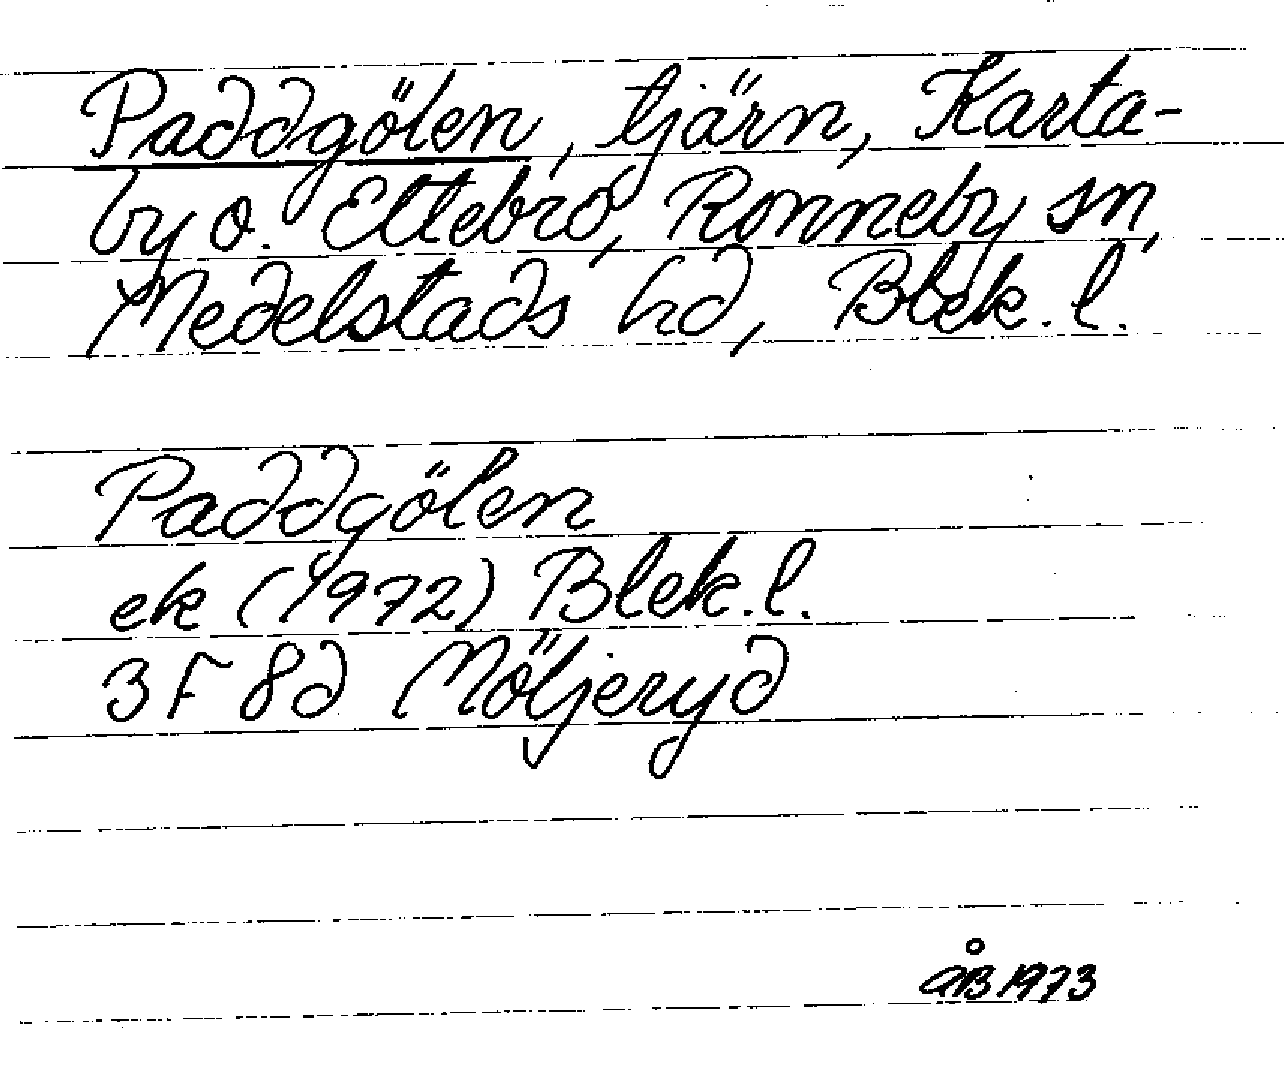 Paddgölen, tjärn, Karta-
by o. Ettebro, Ronneby sn,
Medelstads hd, Blek. l.
Paddgölen
ek (1972) Blek. l.
3 F 8d Möljeryd
ÅB 1973